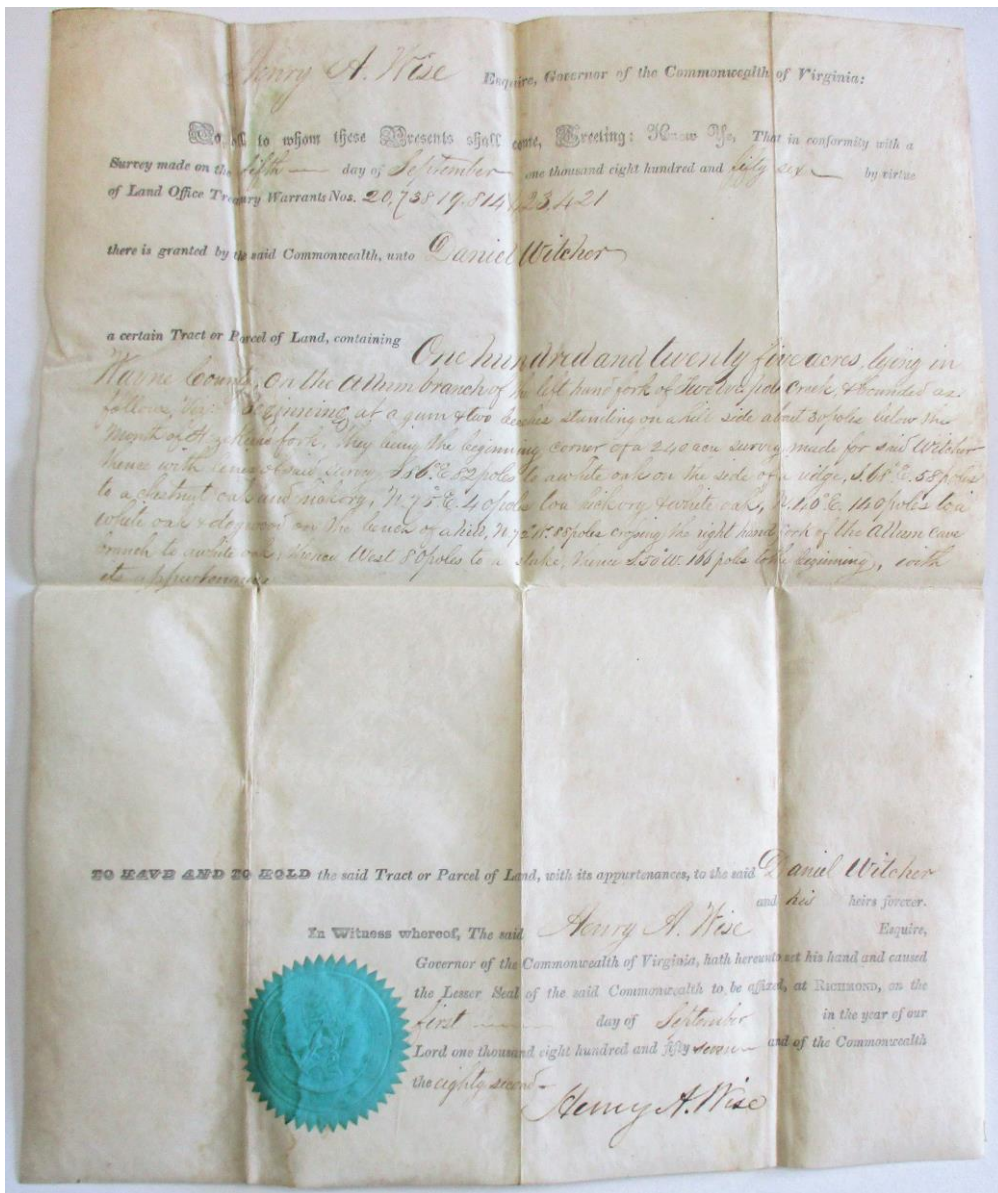 Henry A. Wise Esquire, Governor of the Commonwealth of Virginia:
To all to whom these Presents shall come, Greeting: Know Ye, That in conformity with a
Survey made on the fifth day of September one thousand eight hundred and fifty six by virtue
of Land Office Treasury Warrants Nos. 20,738 19,814 & 23,421
there is granted by the said Commonwealth, unto Daniel Witcher
a certain Tract or Parcel of Land, containing One hundred and twenty five acres, lying in
Wayne County, on the Allum branch of the left hand fork of Twelve pole Creek, & bounded as
follows, Beginning at a gum & two beeches standing on a hill side about 30 poles below the
mouth of fork, they being the beginning corner of a 240 acre survey made for said Witcher
thence with lines of said survey, S 56° E. 82 poles to a white oak on the side of a ridge, S. 68° E. 58 poles
to a chestnut oak and hickory, N. 75° E. 40 poles to a hickory & white oak, N. 40° E. 140 poles to a
white oak & dogwood on the bench of a hill, N 72 W. 88 poles crossing the right hand fork of the Allum Cave
branch to a white oak, thence West 80 poles to a stake, thence S. 50 W. 166 poles to the beginning, with
its appurtenances
TO HAVE AND TO HOLD the said Tract or Parcel of Land, with its appurtenances, to the said Daniel Witcher
and his heirs forever.
In Witness whereof, The said Henry A. Wise Esquire,
Governor of the Commonwealth of Virginia, hath hereunto set his hand and caused
the Lesser Seal of the said Commonwealth to be affixed, at RICHMOND, on the
first day of September in the year of our
Lord one thousand eight hundred and fifty seven and of the Commonwealth
the eighty second
Henry A. Wise